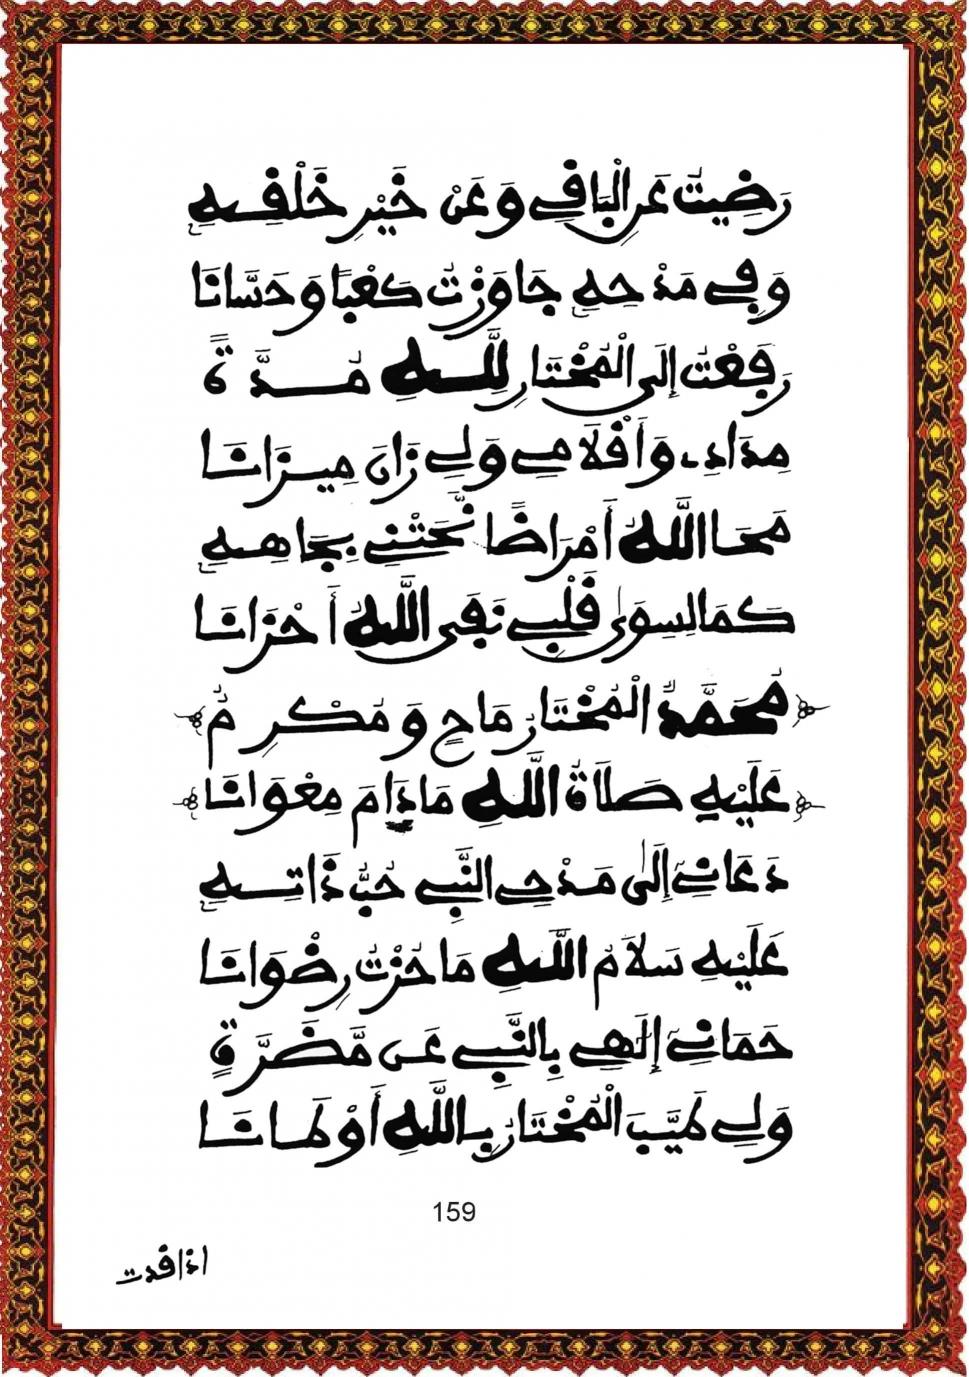 رَضِيتُ عَنِ الْبَاقِي وَعَنْ خَيْرِ خَلْقِهِ
وَفِي مَدْحِهِ جَاوَزْتُ كَعْبًا وَحَسَّانَا
رَفَعْتُ إِلَى الْمُخْتَارِ لِلَّهِ مُدَّةً
مِدَادِي وَأَقْلَامِي وَلِي زَانَ مِيزَانَا
مَحَا اللَّهُ أَمْرَاضًا نَّحَتْنِي بِجَاهِهِ
كَمَا لِسِوَى قَلْبِي نَفَى اللَّهُ أَحْزَانَا
مُحَمَّدٌ الْمُخْتَارُ مَاحٍ وَمُكْرِمٌ
عَلَيْهِ صَلَاةُ اللَّهِ مَا دَامَ مِعْوَانَا
دَعَانِي إِلَى مَدْحِ النَّبِي حُبُّ ذَاتِهِ
عَلَيْهِ سَلَامُ اللَّهِ مَا حُزْتُ رِضْوَانَا
حَمَانِي إِلَهِي بِالنَّبِي عَن مَّضَرَّةٍ
وَلِي طَيَّبَ الْمُخْتَارُ بِاللَّهِ أَوْطَانَا
159
اذا قدت